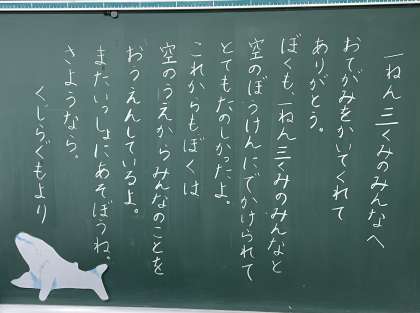 一ねん三くみのみんなへ
おてがみをかいてくれて
ありがとう。
ぼくも、一ねん三くみのみんなと
空のぼうけんにでかけられて
とてもたのしかったよ。
これからもぼくは
空のうえからみんなのことを
おうえんしているよ。
またいっしょにあそぼうね。
さようなら。
くじらぐもより